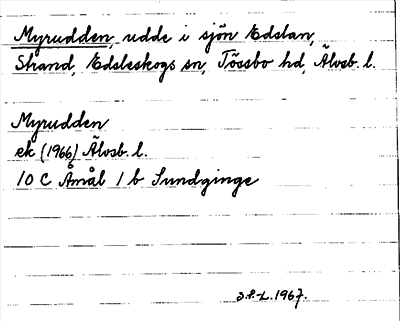 Myrudden, udde i sjön Edslan,
Strand, Edsleskogs sn, Tössbo hd, Älvsb. l.
Myrudden
ek (1966) Älvsb. l.
10 C Åmål 1 b Sundginge
J.P.-L. 1967.